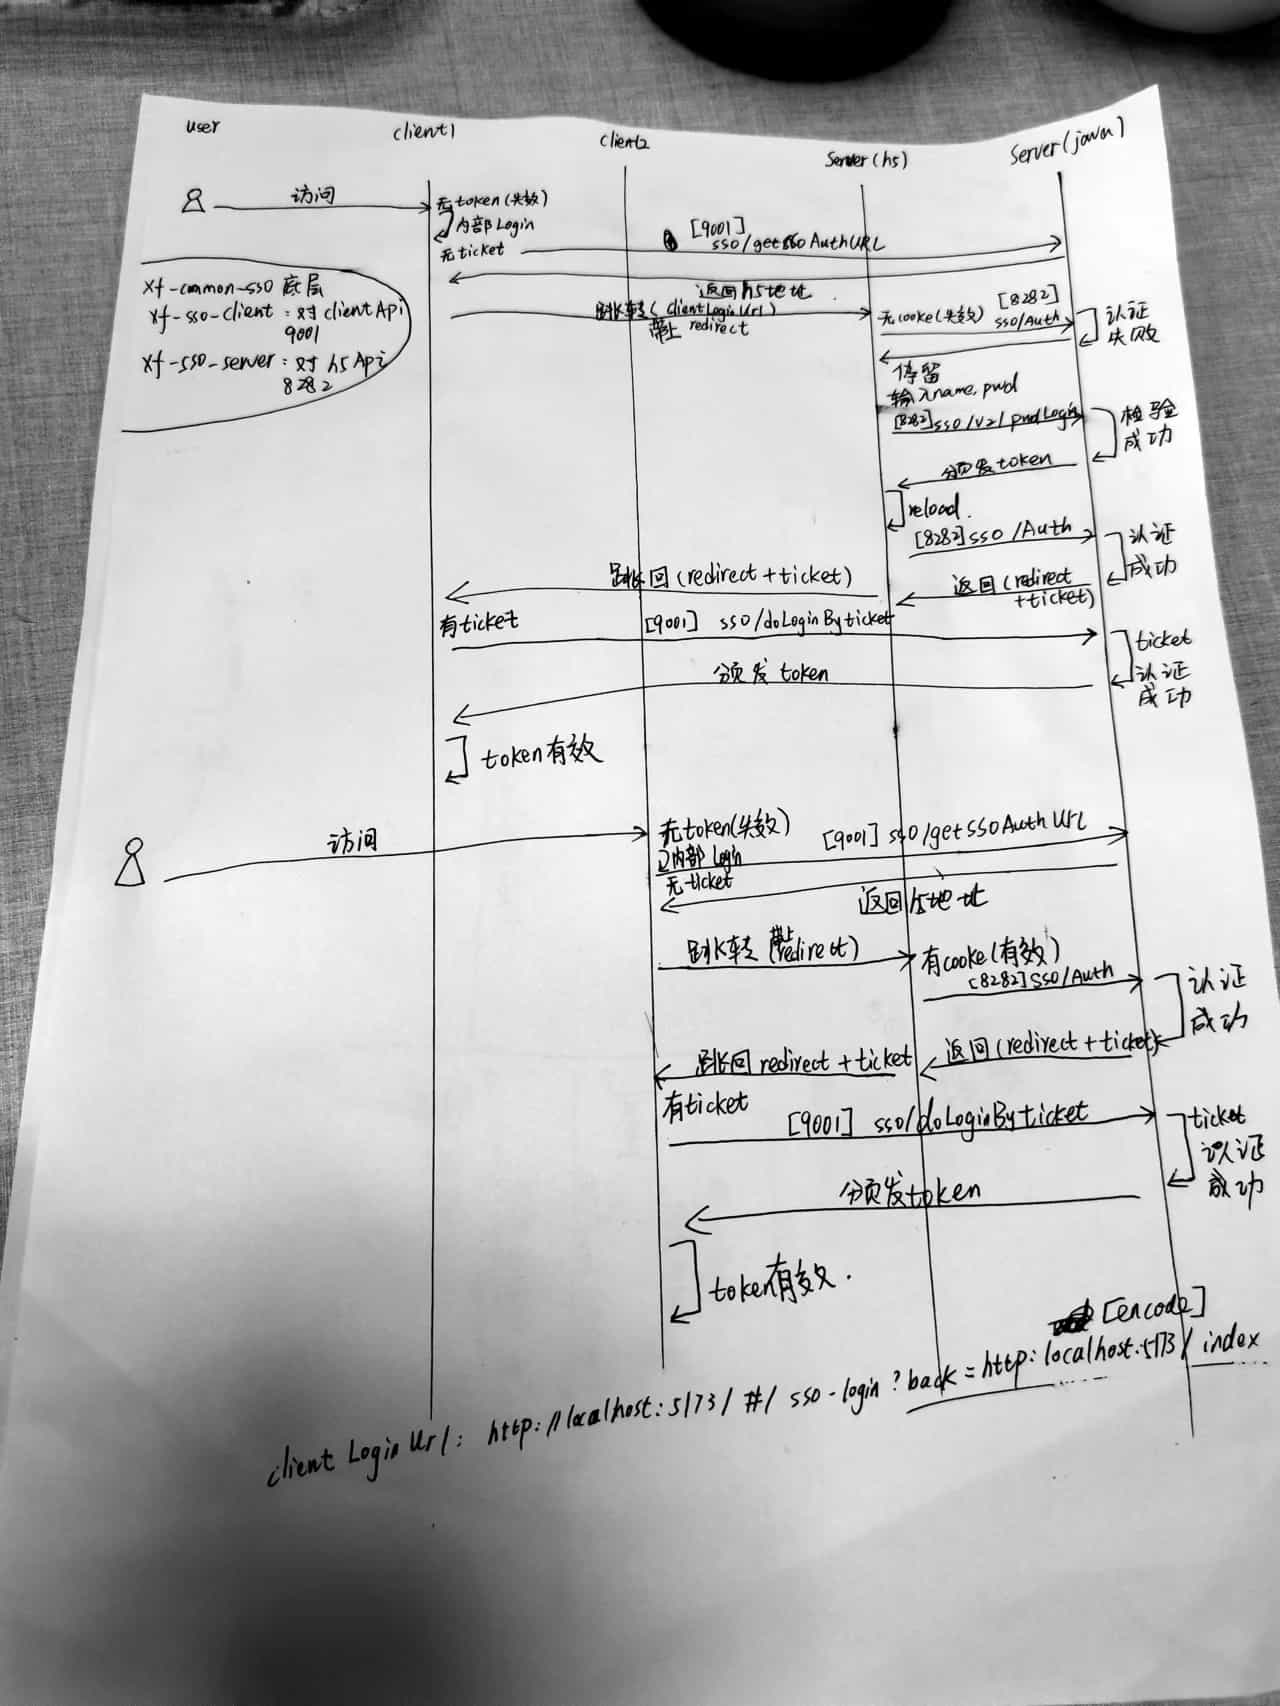 user
client1
client2
Server(h5)
Server(java)
访问
无token(失效)
内部Login
无ticket
[9001]
sso/getssoAuthURL
xf-common-sso 底层
xf-sso-client：对clientApi
9001
xf-sso-server：对h5Api
8282
返回h5地址
跳转(clientLoginUrl)
带上 redirect
无cooke(失效)
[8282]
sso/Auth
认证
失败
停留
输入name,pwd
[8282]sso/v2/pwdLogin
检验
成功
颁发token
reload.
[8282]sso/Auth
认证
成功
返回(redirect
+ticket)
跳回(redirect+ticket)
有ticket
[9001] sso/doLoginByticket
ticket
认证
成功
颁发token
token有效
访问
无token(失效)
内部login
无ticket
[9001]sso/getSSOAuthURL
返回h5地址
跳转(带上redirect)
有cooke(有效)
[8282]SSO/Auth
认证
成功
返回(redirect+ticket)
跳回redirect+ticket
有ticket
[9001] sso/doLoginByticket
ticket
认证
成功
颁发token
token有效.
[encode]
client Login Url: http://localhost:5173/#/sso-login?back=http:localhost:5173/index